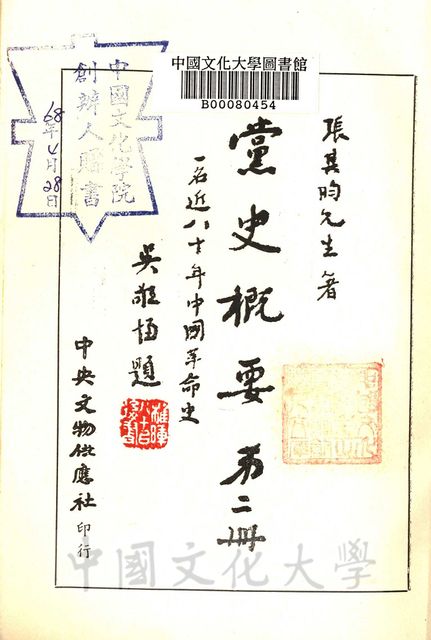 中國文化大學圖書館
B00080454
中國文化學院
創辦人贈書
68年4月28日
張其昀先生著
黨史概要 第二冊
一名近八十年中國革命史
吳敬恆題
中央文物供應社印行
中國文化大學